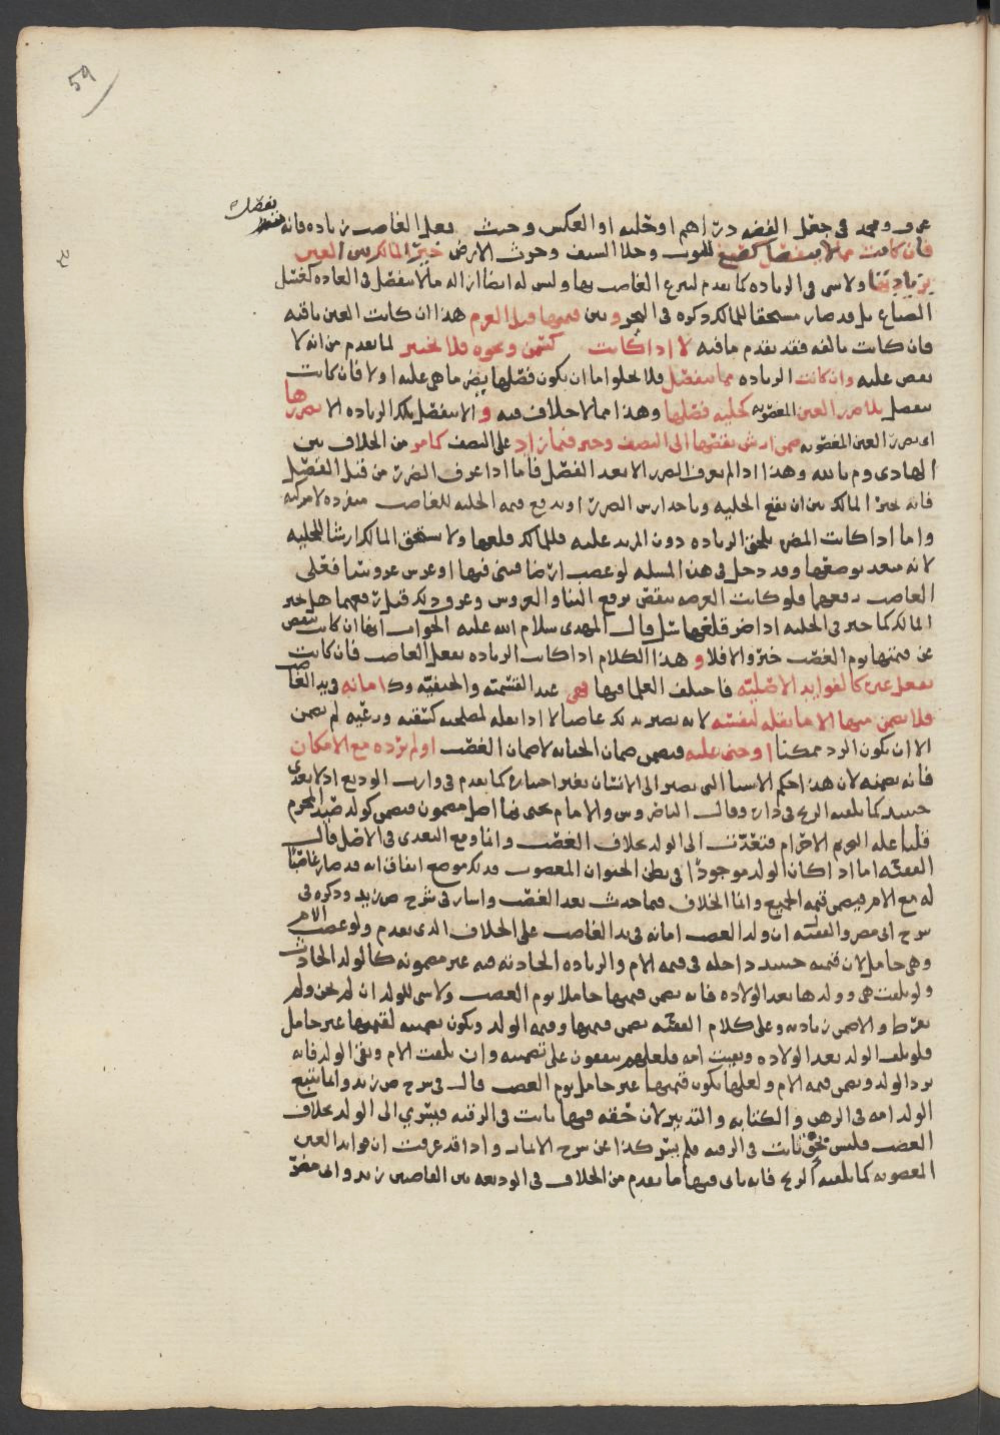 59
عرف ومحمد في جعل الفضه دراهم او حليه او العكس وحيث فعل الغاصب زياده فانه
فان كانت مما لا ينفصل كصبغ الثوب وحلا السيف وحرث الارض خير المالك بين العين
بزيادتها ولا شي في الزياده كما تقدم لتبرع الغاصب بها وليس له ايضا ازاله ما لا ينفصل في العاده كغسل
الصباغ بل قد صار مستحقا للمالك ذكره في البحر وبين قيمتها قبل الغرم هذا ان كانت العين باقيه
فان كانت تالفه فقد تقدم ما فيه لا اذا كانت كسمن ونحوه فلا تخيير لما تقدم من انه لا
يعوض عليه وان كانت الزياده مما ينفصل فلا يخلوا اما ان يكون فصلها يضر ما هي عليه اولا فان كانت
تنفصل بلا ضرر العين المغصوبه كحليه فصلها وهذا مما لا خلاف فيه والا ينفصل تلك الزياده الا بضررها
اي بضرر العين المغصوبه ضمن ارش نقصها الى النصف وخير فيما زاد على النصف كما مر من الخلاف بين
الهادي وم بالله وهذا اذا لم يعرف الضرر الا بعد الفصل فاما اذا عرف الضرر من قبل الفصل
فانه يخير المالك بين ان يقلع الحليه وياخذ ارش الضرر او يدفع قيمه الحليه للغاصب منفرده لا مركبه
واما اذا كانت المضره تلحق الزياده دون المزيد عليه فللمالك قلعها ولا يستحق المالك ارشا للحليه
لانه متعد بوضعها وقد دخل في هذه المسله لو غصب ارضا فبنى فيها او غرس غروسا فعلى
الغاصب رفعهما فلو كانت العرصه تنقص برفع البنا والغروس وعرف ذلك قبل رفعهما هل يخير
المالك كما خير في الحليه اذا ضر قلعها سل قال المهدي سلام الله عليه الجواب انها ان كانت تنقص
عن قيمتها يوم الغصب خير والا فلا وهذا الكلام اذا كانت الزياده بفعل الغاصب فان كانت
بفعل غيره كالفوايد الاصليه فاختلف العلما فيها فهي عند القسميه والحنفيه وك امانه في يد الغاصب
فلا يضمن منها الا ما نقله لنفسه لانه يصير بذلك غاصبا لا اذا نقله لمصلحته كسقيه ورعيه لم يضمن
الا ان يكون الرد ممكنا او جنى عليه فيضمن ضمان الجنايه لا ضمان الغصب او لم يرده مع الامكان
فانه يضمنه لان هذا حكم الاشيا التي تصير الى الانسان بغير اختياره كما تقدم في وارث الوديع اذ لا تعدي
حينئذ كما تلقيه الريح في داره وقال الناصر وس والامام يحيى نما اصل مضمون فيضمن كولد صيد المحرم
قلنا عله التحريم الاحرام فتعدت الى الولد بخلاف الغصب وانما وقع التعدي في الاصل قال
الفقيه اما اذا كان الولد موجودا في بطن الحيوان المغصوب فذلك موضع اتفاق انه قد صار غاصبا
له مع الام فيضمن قيمه الجميع وانما الخلاف فيما حدث بعد الغصب واشار في شرح ض زيد وذكره في
شرح ابي مضر والفقيه ان ولد الغصب امانه في يد الغاصب على الخلاف الذي تقدم ولو غصب الام
وهي حامل لان قيمته حينئذ داخله في قيمه الام والزياده الحادثه فيه غير مضمونه كالولد الحادث
ولو تلفت هي وولدها بعد الولاده فانه يضمن قيمتها حاملا يوم الغصب ولا شي للولد ان لم يجن ولم
يفرط والا ضمن زيادته وعلى كلام الفقيه يضمن قيمتها وقيمه الولد ويكون تضمينه لقيمتها غير حامل
فلو تلف الولد بعد الولاده وبقيت امه فلعلهم يتفقون على تضمينه وان تلفت الام وبقي الولد فانه
يرد الولد ويضمن قيمه الام ولعلها يكون قيمتها غير حامل يوم الغصب قال في شرح ض زيد وانما يتبع
الولد امه في الرهن والكتابه والتدبير لان حقه فيها ثابت في الرقبه فيسري الى الولد بخلاف
الغصب فليس بحق ثابت في الرقبه فلم يسر كذا عن شرح الاثمار واذا قد عرفت ان فوايد العين
المغصوبه كما تلقيه الريح فانه ياتي فيها ما تقدم من الخلاف في الوديعه بين القاضيين زيد وابي مضر